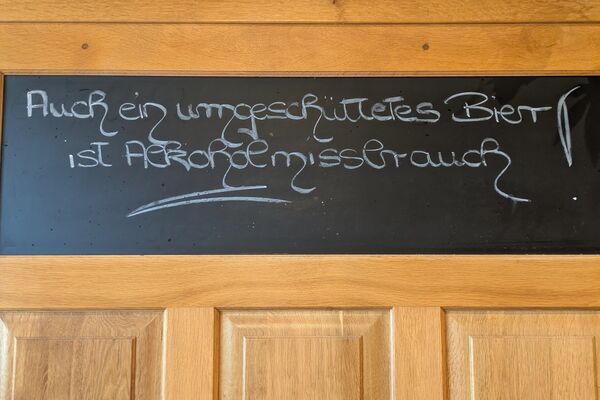 Auch ein umgeschüttetes Bier!
ist Alkoholmissbrauch